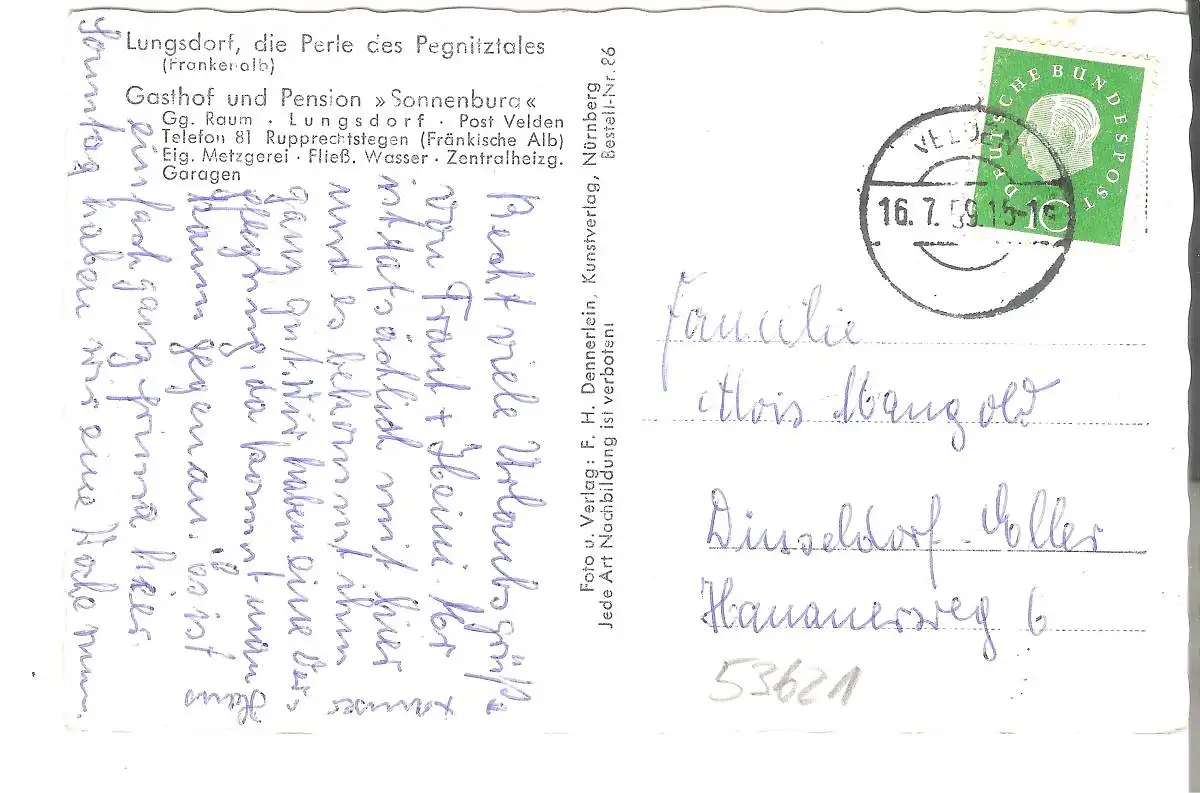 Lungsdorf, die Perle des Pegnitztales
(Frankenalb)
Gasthof und Pension »Sonnenburg«
Gg. Raum · Lungsdorf · Post Velden
Telefon 81 Rupprechtstegen (Fränkische Alb)
Eig. Metzgerei · Fließ. Wasser · Zentralheizg.
Garagen
Recht viele Urlaubsgrüße
von Traut + Heini.
ist tatsächlich mit hier
und es bekommt ihm
ganz gut. Wir haben eine Ver-
pflegung, da kommt man
kaum gegenan. es ist
einfach ganz prima hier.
Sonntag haben wir eine Woche rum.
Foto u. Verlag: F. H. Dennerlein, Kunstverlag, Nürnberg
Jede Art Nachbildung ist verboten! Bestell-Nr. 86
DEUTSCHE BUNDESPOST
10
VELDEN
16.7.59.15-1
Familie
Alois Mangold
Düsseldorf-Eller
Hanauerweg 6
53621